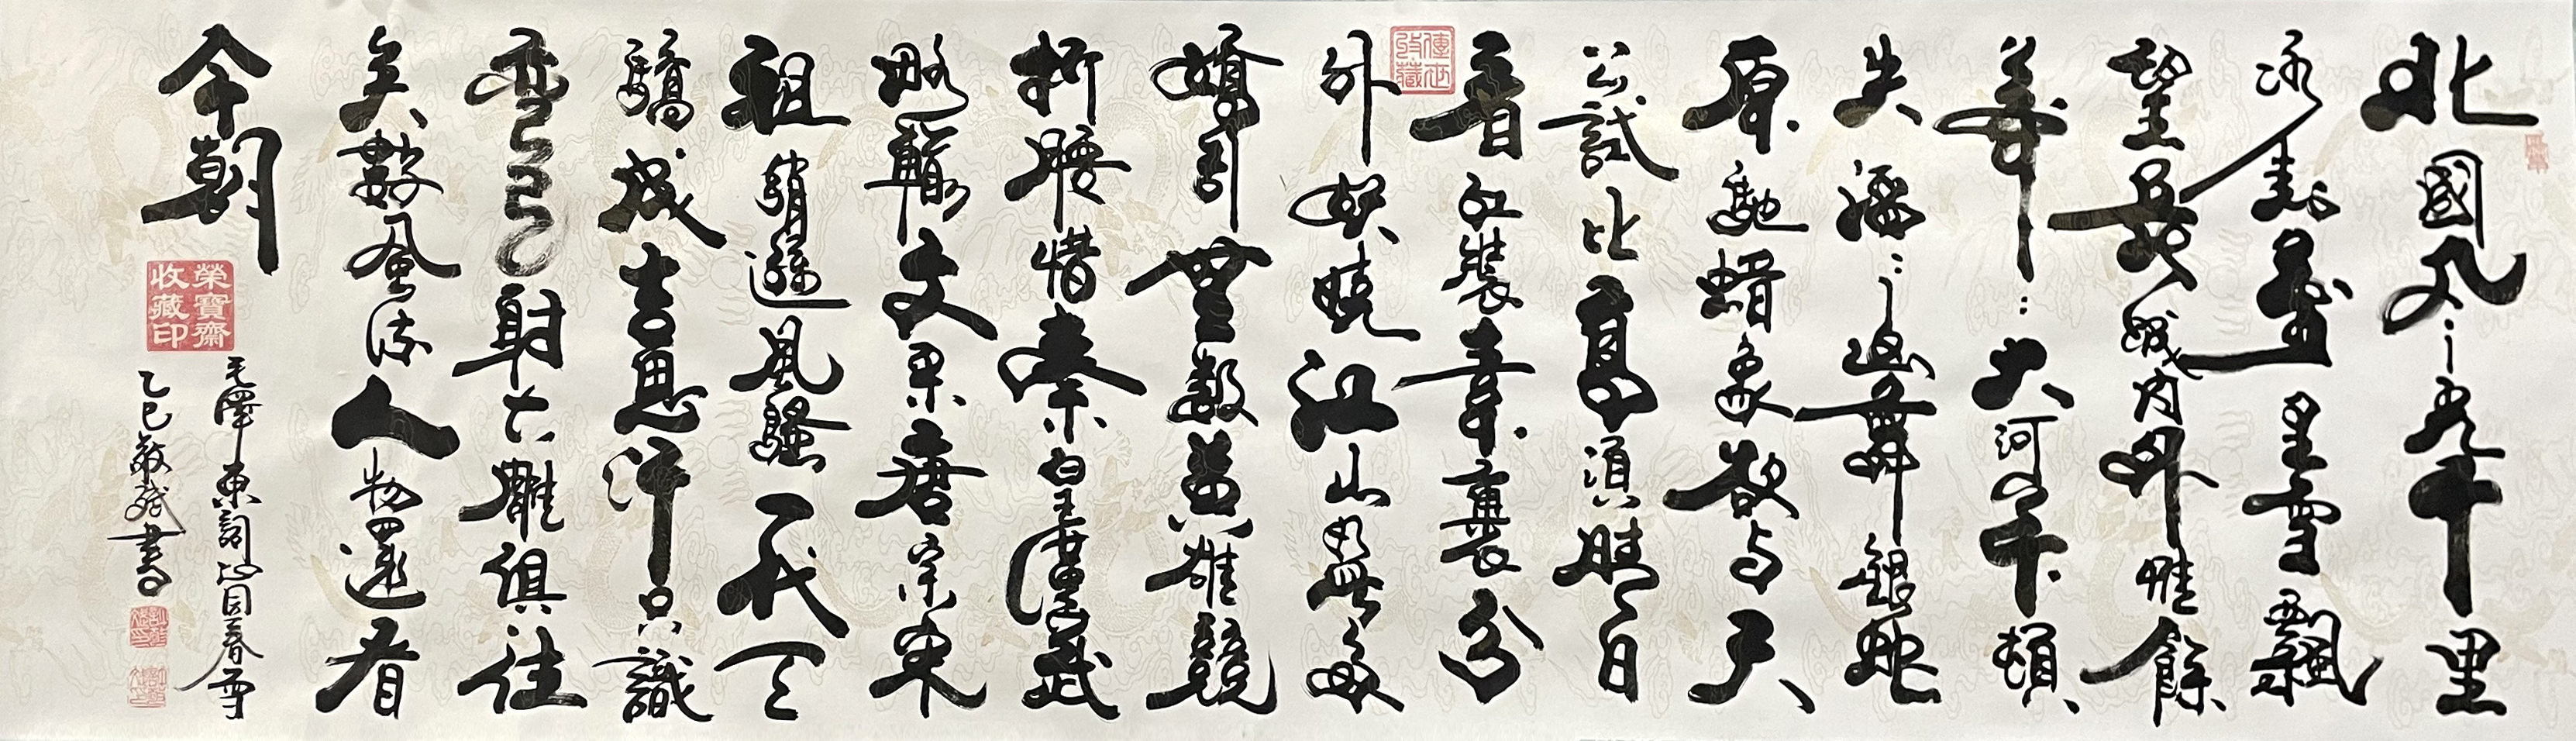 北國风光千里
冰封萬里雪飄
望長城内外惟餘
莽々大河上下頓
失滔々山舞銀蛇
原馳蜡象欲与天
公試比高須晴日
看红裝素裹分
外妖嬈江山如此多
嬌引無數英雄競
折腰惜秦皇漢武
略輸文采唐宗宋
祖稍遜風騷一代天
驕成吉思汗只識
弯弓射大雕俱往
矣數風流人物還看
今朝
毛澤東詞沁园春雪
乙巳敬斌書
榮寶齋
收藏印
傳世
收藏